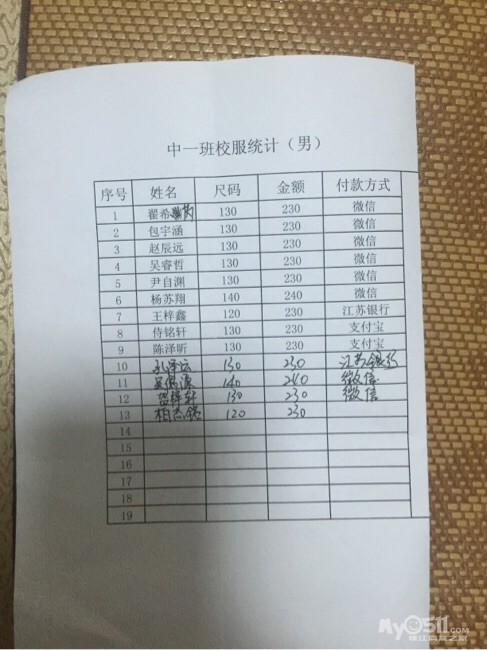 中一班校服统计（男）
序号 姓名 尺码 金额 付款方式
1 翟希 130 230 微信
2 包宇涵 130 230 微信
3 赵辰远 130 230 微信
4 吴睿哲 130 230 微信
5 尹自渊 130 230 微信
6 杨苏翔 140 240 微信
7 王梓鑫 120 230 江苏银行
8 侍铭轩 130 230 支付宝
9 陈泽昕 130 230 支付宝
10 孔泽 130 230 江苏银行
11 140 240 微信
12 轩 130 230 微信
13 柏 120 230
14
15
16
17
18
19
My0511.com